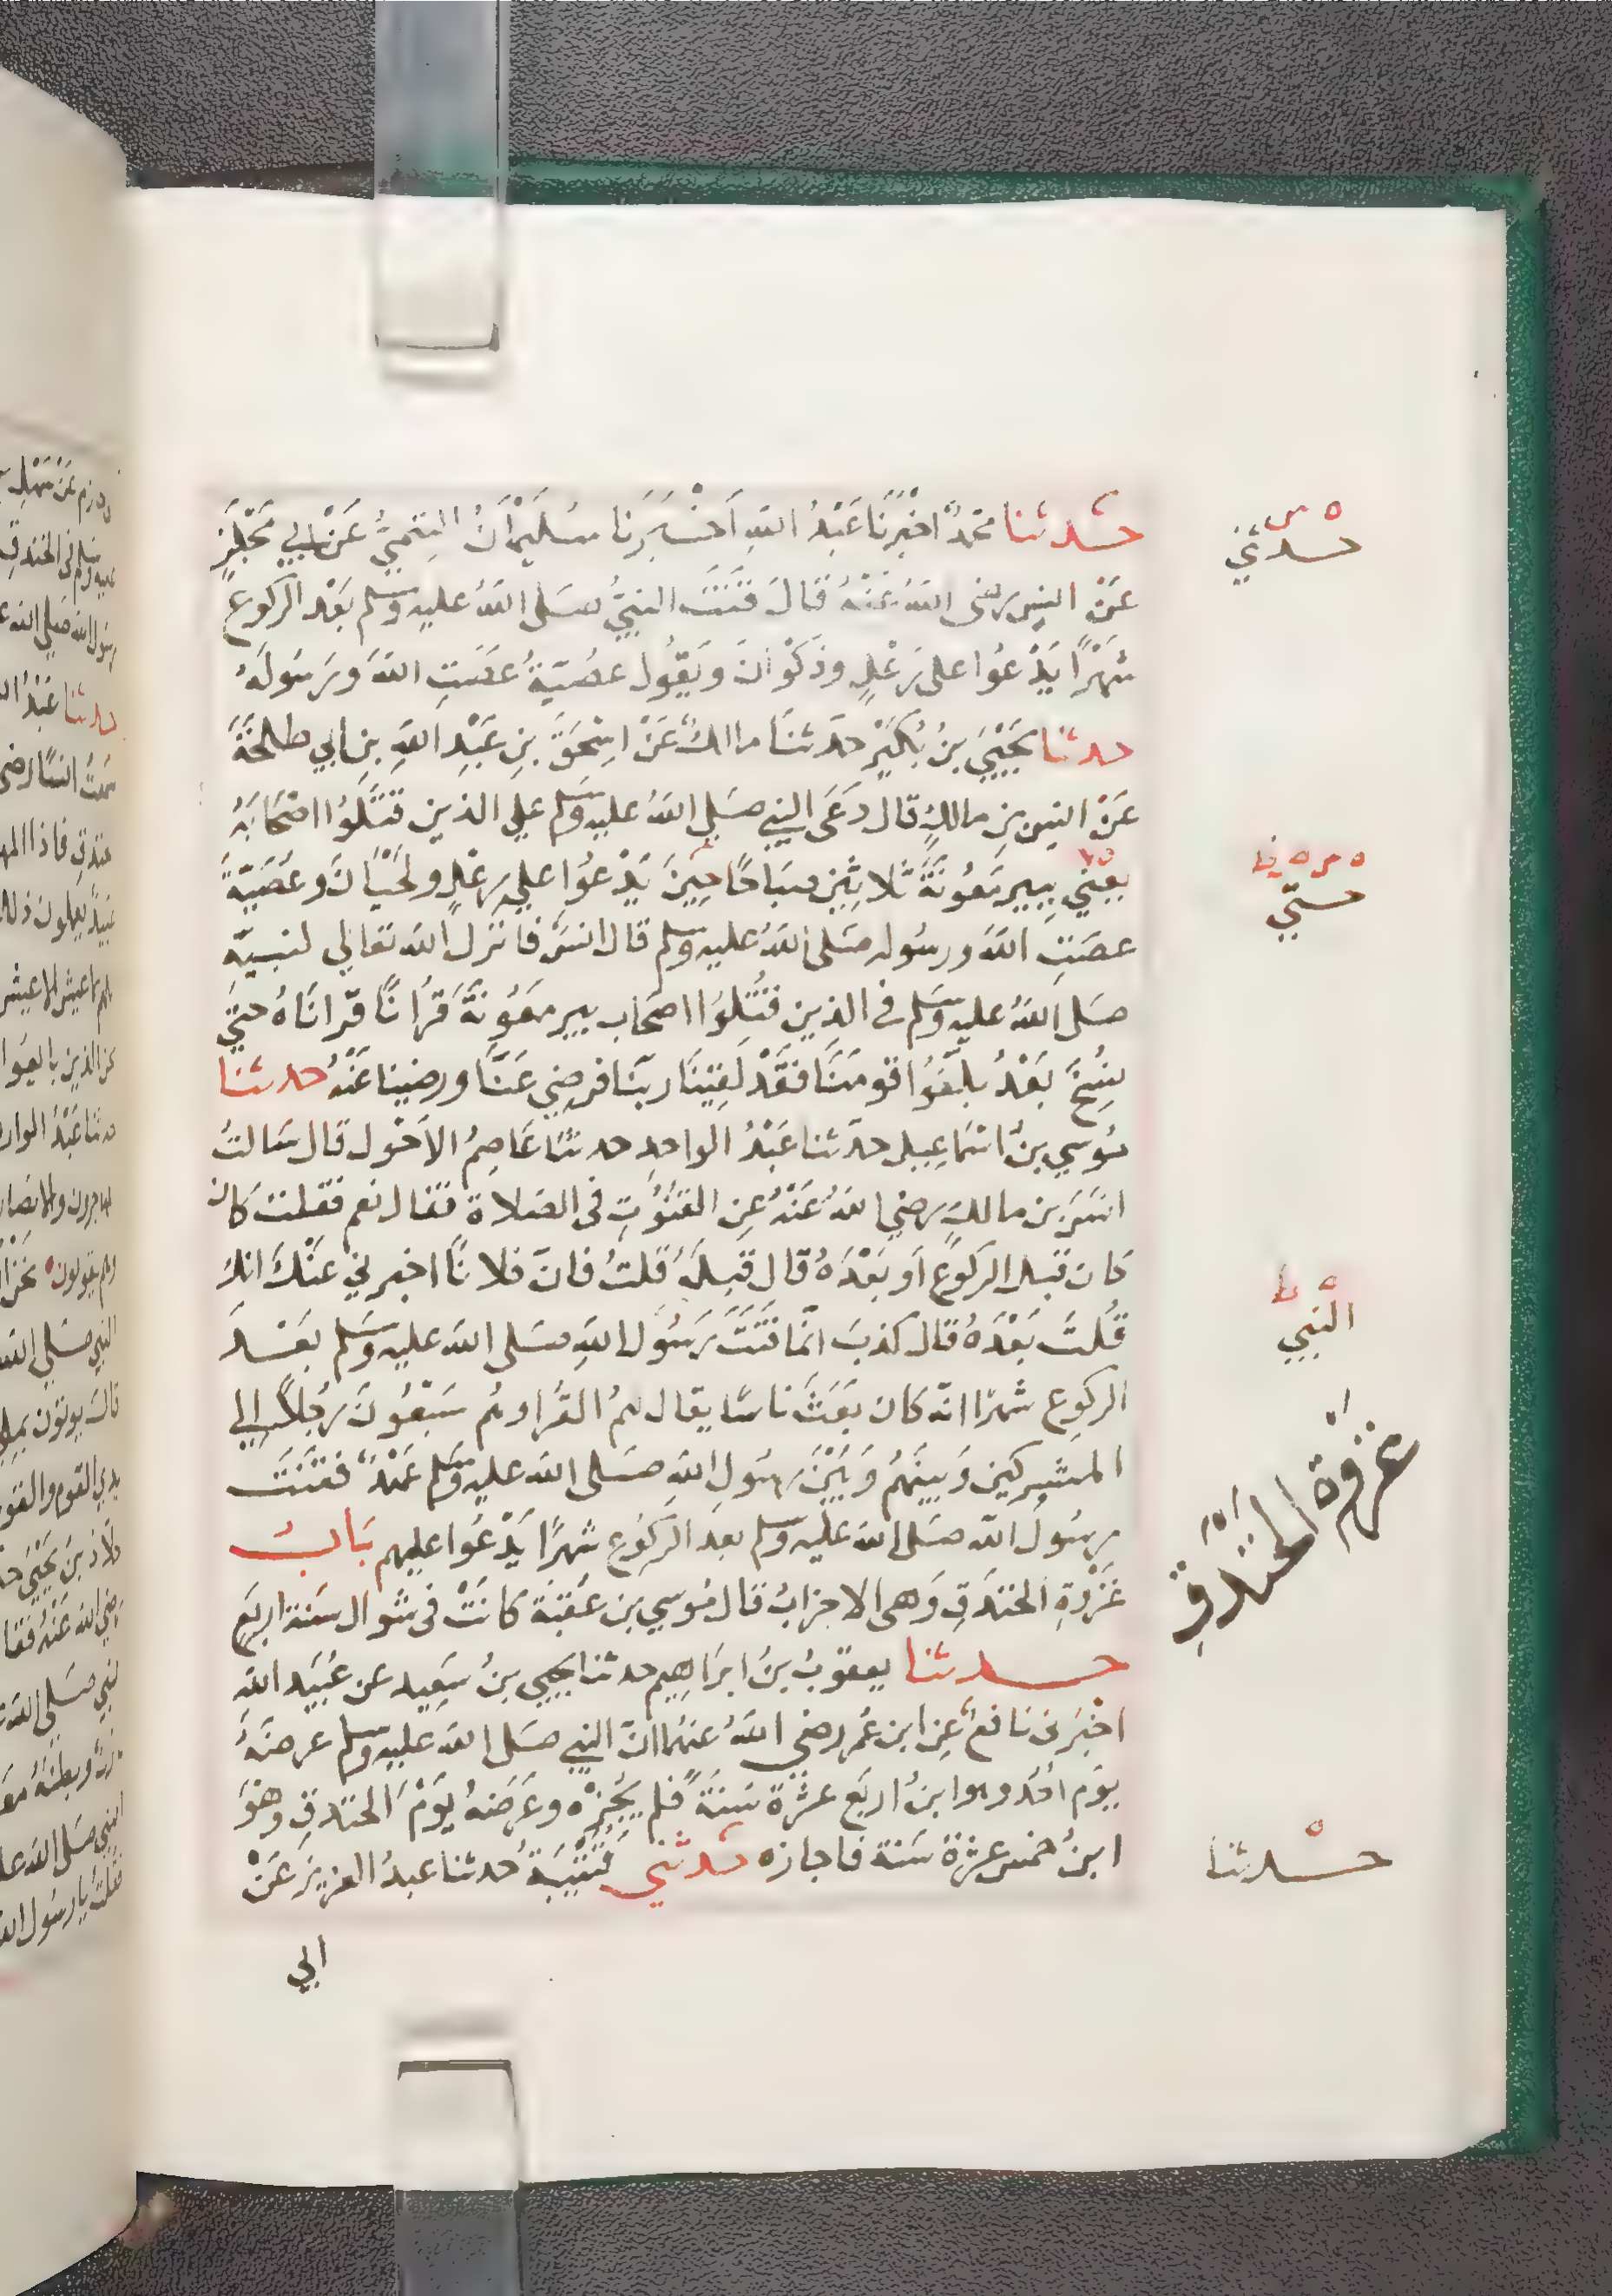 حدثنا محمد اخبرنا عبد الله اخبرنا سليمان التيمي عن ابي مجلز
عن انس رضى الله عنه قال قنت النبي صلى الله عليه وسلم بعد الركوع
شهرا يدعوا على رعل وذكوان ويقول عصية عصت الله ورسوله
حدثنا يحيي بن بكير حدثنا مالك عن اسحق بن عبد الله بن ابي طلحة
عن انس بن مالك قال دعى النبي صلى الله عليه وسلم علي الذين قتلوا اصحابه
يعني ببير معونة ثلاثين صباحا حين يدعوا علي رعل ولحيان وعصية
عصت الله ورسوله صلى الله عليه وسلم قال انس فانزل الله تعالي لنبيه
صلى الله عليه وسلم في الذين قتلوا اصحاب بير معونة قرانا قراناه حتي
نسخ بعد بلغوا قومنا فقد لقينا ربنا فرضي عنا ورضينا عنه حدثنا
موسي بن اسماعيل حدثنا عبد الواحد حدثنا عاصم الاحول قال سالت
انس بن مالك رضي الله عنه عن القنوت في الصلاة فقال نعم فقلت كان
كان قبل الركوع او بعده قال قبله قلت فان فلانا اخبرني عنك انك
قلت بعده قال كذب انما قنت رسول الله صلى الله عليه وسلم بعد
الركوع شهرا انه كان بعث ناسا يقال لهم القرا وهم سبعون رجلا الي
المشركين وبينهم وبين رسول الله صلى الله عليه وسلم عهد فقنت
رسول الله صلى الله عليه وسلم بعد الركوع شهرا يدعوا عليهم باب
غزوة الخندق وهى الاحزاب قال موسي بن عقبة كانت في شوال سنة اربع
حدثنا يعقوب بن ابراهيم حدثنا يحيي بن سعيد عن عبيد الله
اخبرني نافع عن ابن عمر رضي الله عنهما ان النبي صلى الله عليه وسلم عرضه
يوم احد وهو ابن اربع عشرة سنة فلم يجزه وعرضه يوم الخندق وهو
ابن خمس عشرة سنة فاجازه حدثني قتيبة حدثنا عبد العزيز عن
ابي
حدثني
حتي
النبي
غزوة الخندق
حدثنا